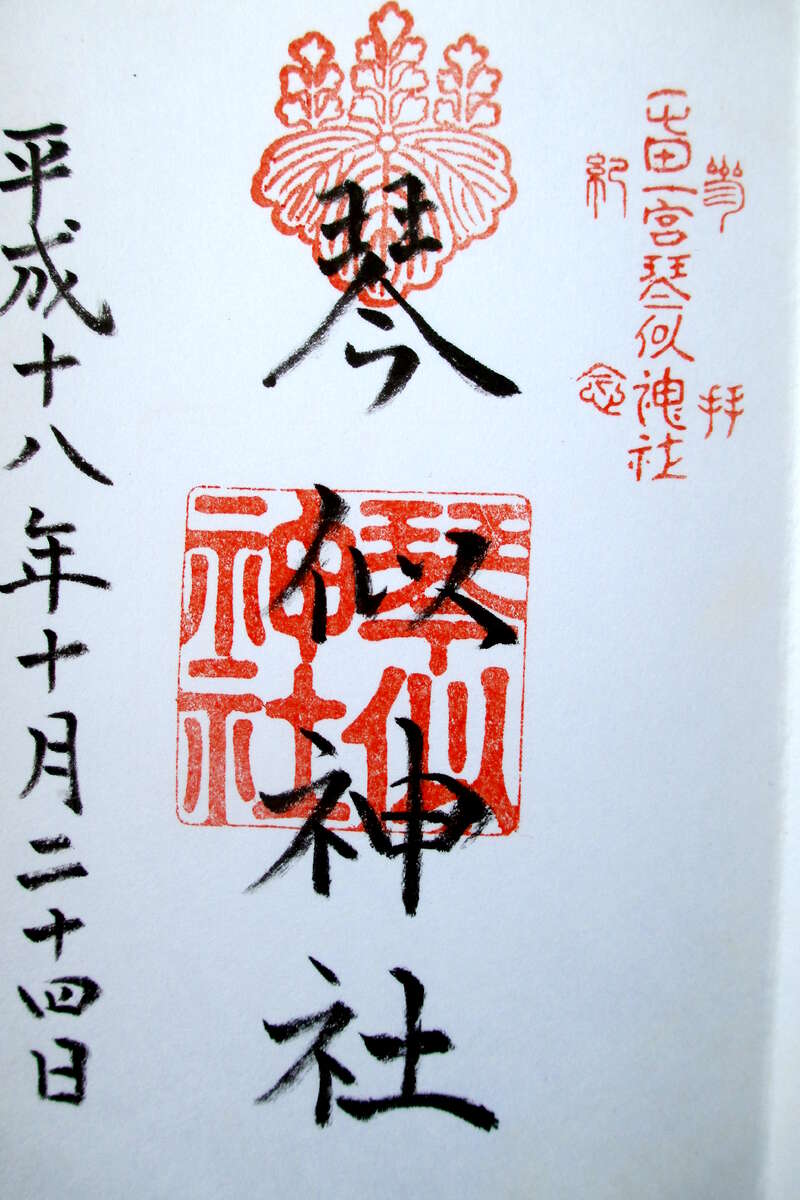 参拝
屯田一宮琴似神社
紀念
琴似神社
琴似
神社
平成十八年十月二十四日